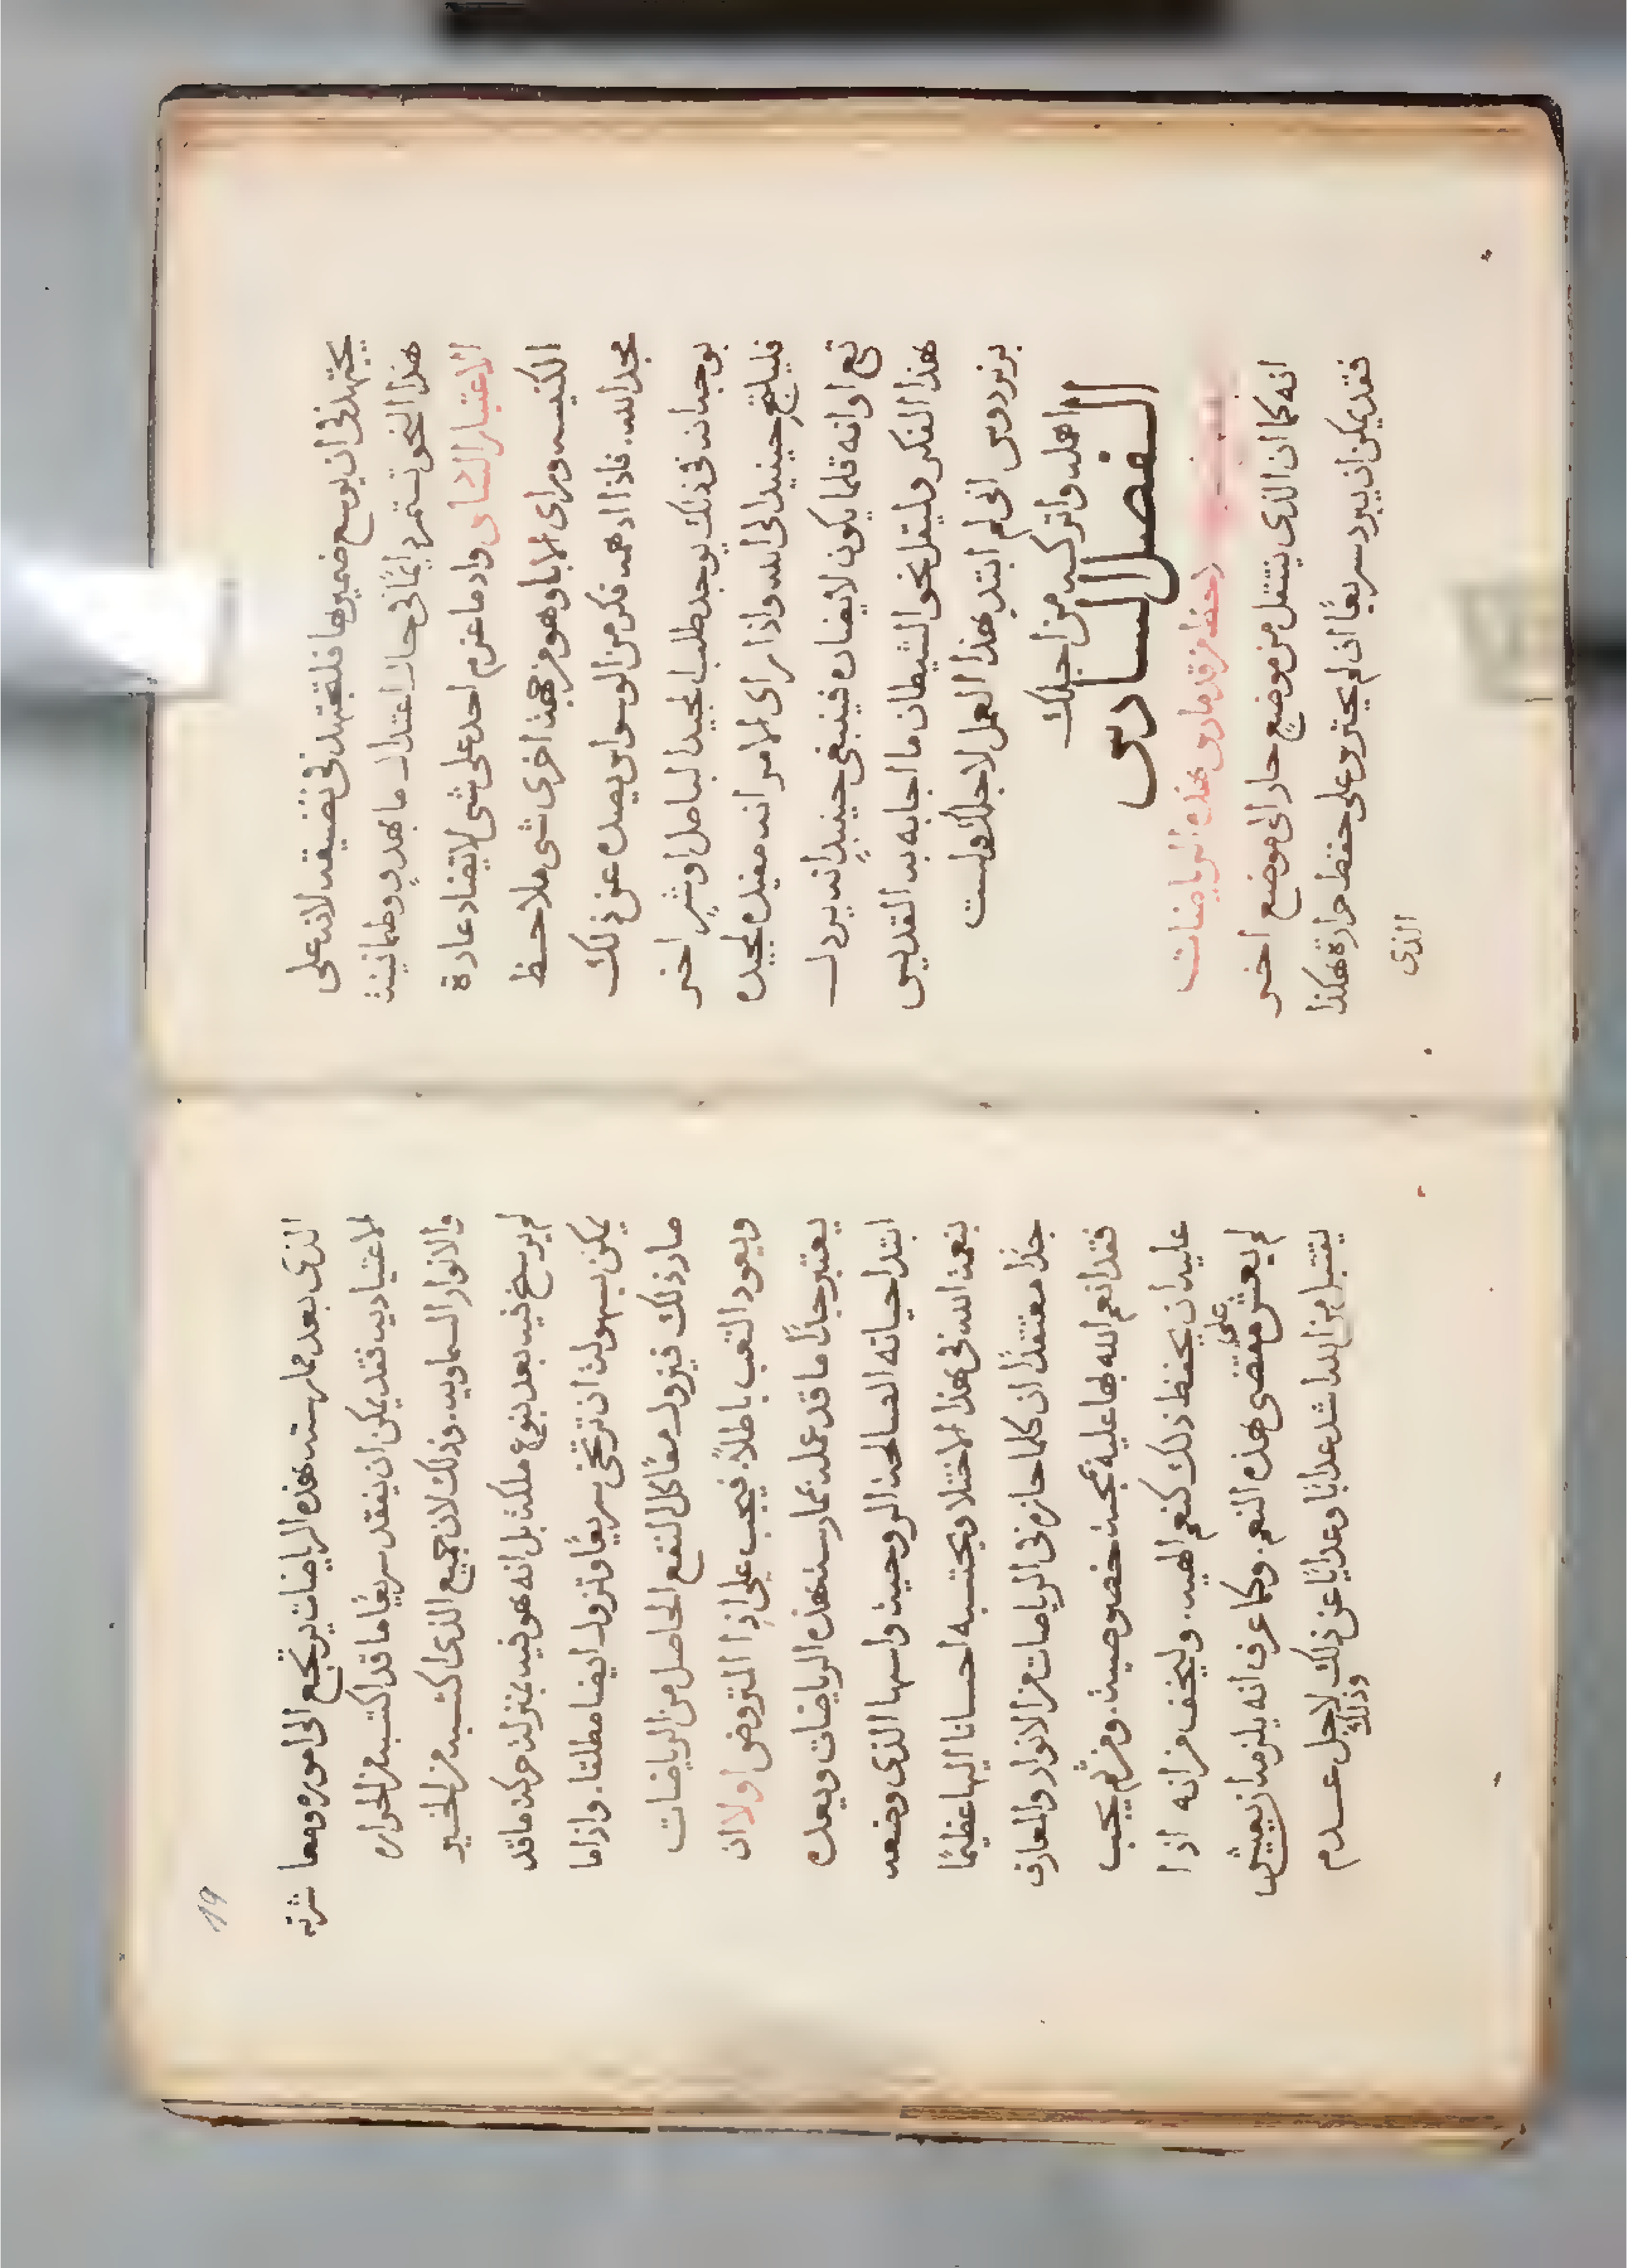 يجتهد في ان يوسع ضميرها فلتجتهد في تضييقه لانه على
هذا النحو تستمر دايمًا في حال اعتدال ما بهدوٍ وطمانينة
الاعتبار الثاني واد ما عزم احد على شى لا يتضاد عادة
الكنيسه وراى الابا وهو من جهة اخرى شى ملاحظ
مجد الله. فاذا ادهمه فكر من الوسواس يصده عن ذلك
بوجبانه في ذلك يوجد طلب المجيد الباطل او شرٍ اخر
فليلتج حينيد الى الله واذا راى الامر انه مفيد لمجيده
تع او انه قلما يكون لا يضاده فينبغى حينيدٍ انه يرذل
هذا الفكر وليقل نحو الشيطان ما اجابه به القديس
برنردوس اني لم ابتدِ هذا العمل لاجلك ولست
اهمله واتركه من اجلك
الفصل السادس
هذه الرياضات
انه كما ان الذى ينتقل من موضع حار الى موضع اخر
فقد يمكن ان يبرد سريعًا ان لم يحترص على حفظ حرارة هكذا
الذى
19
الذى بعد ممارسته هذه الرياضات يرتجع الى اموره ومعاشرته
الاعتياديه فقد يمكن ان يفقد سريعًا ما قد اكتسبه من الحراره
والانوار السماويه. وذلك لان جميع الذى اكتسبه من الخير
لم يرسخ فيه بعد بنوع ملكة بل انه هو فيه بمنزلة حركه ما قد
يمكن بسهولة ان ترتخى سريعًا وتزول ايضا مطلقا. واذا ما
صار ذلك فيزول معًا كل النفع الحاصل من الرياضات
ويعود التعب باطلاً. فيجب على اذًا المتروض اولا ان
يعتبر جدًا ما قد عمله بممارسته هذه الرياضات ويعده
ابتدا حياته الصالحة الروحية واسها الذى وضعه
بنعمة الله في هذا الاختلا ويحتسبه احسانا الهيا عظيمًا
جدًا معتقدًا ان كلما حازه في الرياضات من الانوار والمعارف
فقد انعم الله بها عليه بمحبة خصوصية. ومن ثم يجب
عليه ان يحفظ ذلك كنعم الهيه. وليخف من انه اذا
لم يعش على مقتضى هذه النعم. وكما عرف انه يلزمه ان يعيش
يقتبل من الله اشد عذابًا وعدابًا عن ذلك لاجل عدم
وذلك